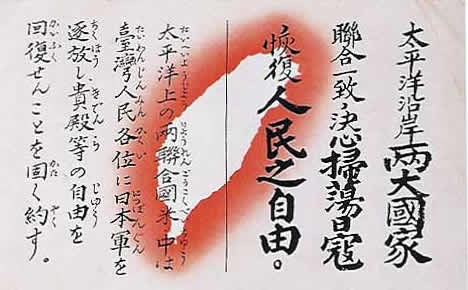 太平洋沿岸両大國家
聯合一致決心掃蕩日寇
恢復人民之自由。
太平洋上の両聯合國米中は
臺灣人民各位に日本軍を
逐放し貴殿等の自由を
回復せんことを固く約す。